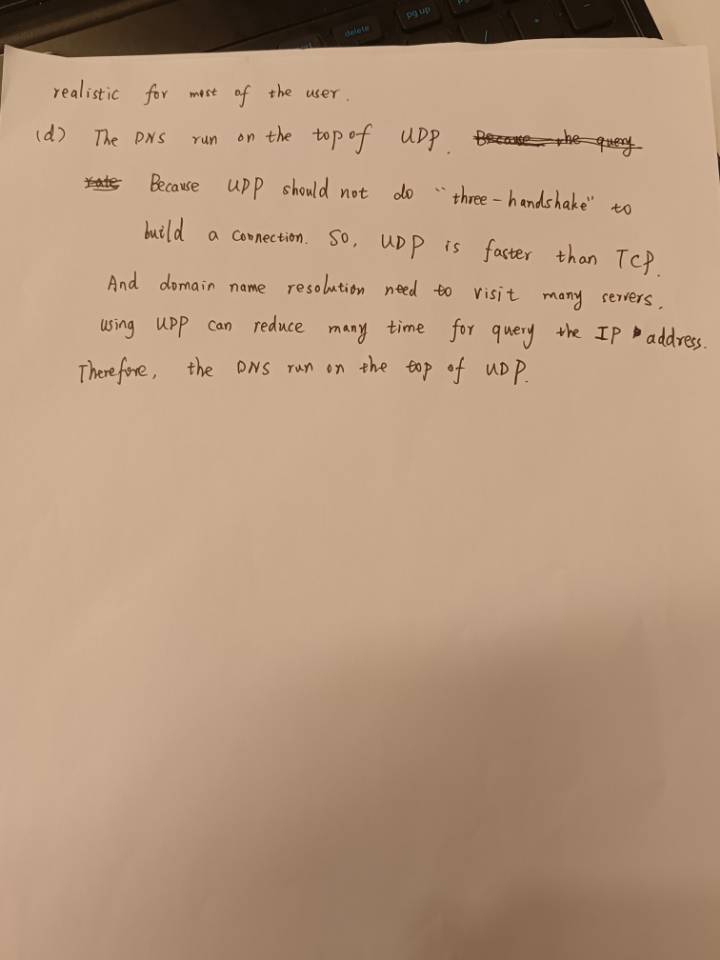 delete
pg up
realistic for most of the user.
(d) The DNS run on the top of UDP. Because the query
rate Because UDP should not do "three-handshake" to
build a connection. So, UDP is faster than TCP.
And domain name resolution need to visit many servers.
using UDP can reduce many time for query the IP address.
Therefore, the DNS run on the top of UDP.